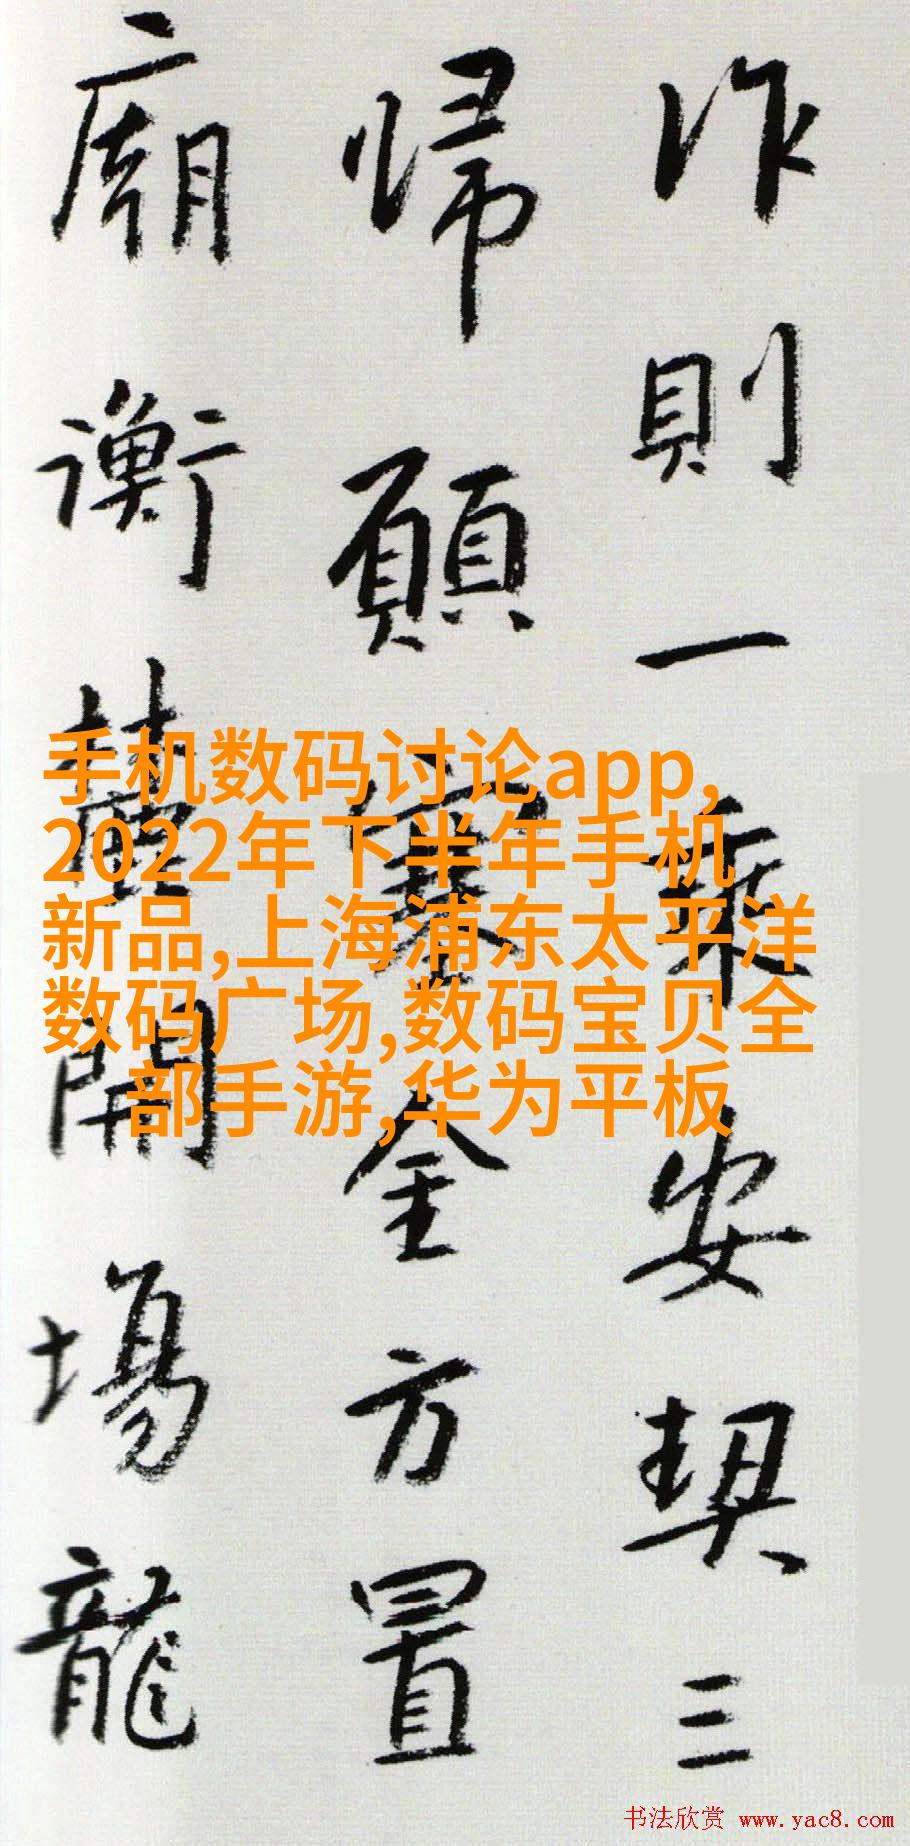 作則一乘安契三
歸願寨全方置
廟衡贊開場龍
手机数码讨论app,
2022年下半年手机
新品,上海浦东太平洋
数码广场,数码宝贝全
部手游,华为平板
书法欣赏 www.yac8.com